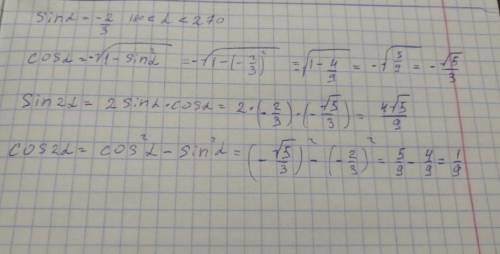 sinα = -2/3 180 < α < 270
cosα = -√(1 - sin²α) = -√(1 - (-2/3)²) = -√(1 - 4/9) = -√(5/9) = -√5/3
sin2α = 2sinα · cosα = 2 · (-2/3) · (-√5/3) = 4√5/9
cos2α = cos²α - sin²α = (-√5/3)² - (-2/3)² = 5/9 - 4/9 = 1/9